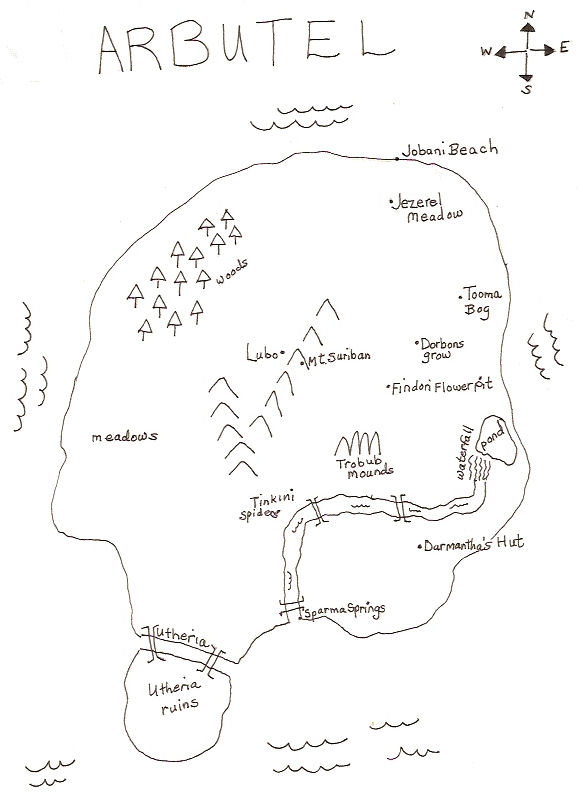 ARBUTEL
N
W E
S
Jobani Beach
Jezerel
meadow
woods
Tooma
Bog
Lubo
Mt. Suriban
Dorbons
grow
Findori Flower pit
meadows
waterfall
pond
Trobub
mounds
Tinkini
spiders
Darmantha's Hut
Sparma Springs
Utheria
Utheria
ruins